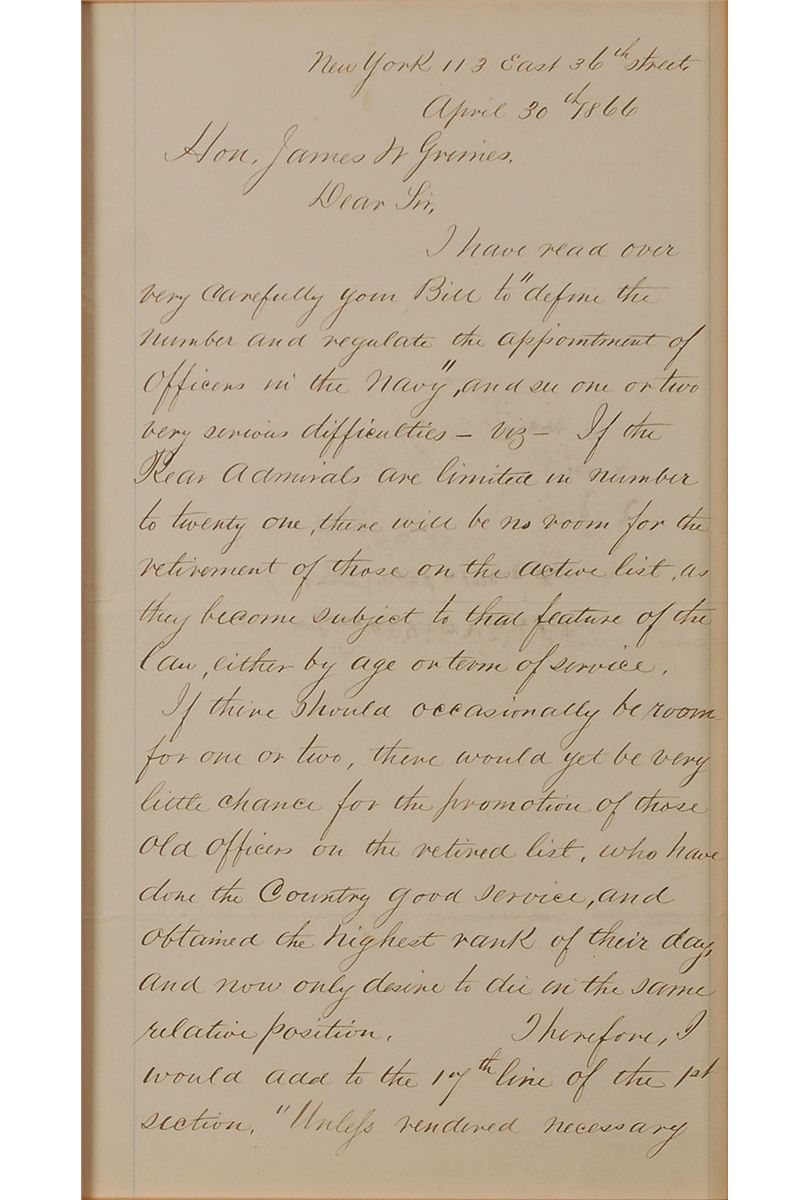 New York 113 East 36th street,
April 30th 1866
Hon. James W Grimes.
Dear Sir,
I have read over
very carefully your Bill to "define the
number and regulate the appointment of
Officers in the Navy", and see one or two
very serious difficulties – viz – If the
Rear Admirals are limited in number
to twenty one, there will be no room for the
retirement of those on the active list, as
they become subject to that feature of the
law, either by age or term of service.
If there should occasionally be room
for one or two, there would yet be very
little chance for the promotion of those
old officers on the retired list, who have
done the Country good service, and
obtained the highest rank of their day,
and now only desire to die in the same
relative position. Therefore, I
would add to the 17th line of the 1st
section, "Unless rendered necessary